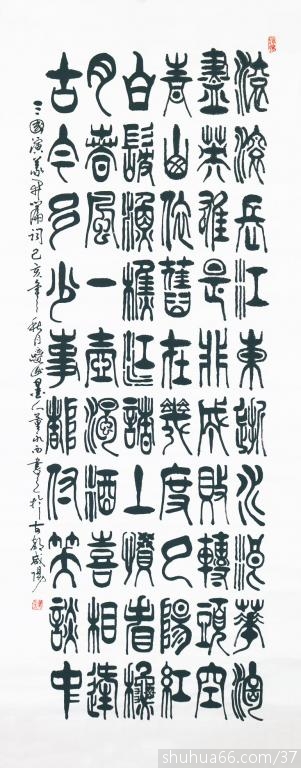 滾滾長江東逝水浪華淘
盡英雄是非成敗轉頭空
青山依舊在幾度夕陽紅
白髮漁樵江渚上慣看秋
月春風一壺濁酒喜相逢
古今多少事都付笑談中
三國演義開篇詞己亥年之秋月墨人董永西書之於古都咸陽
shuhua66.com/37